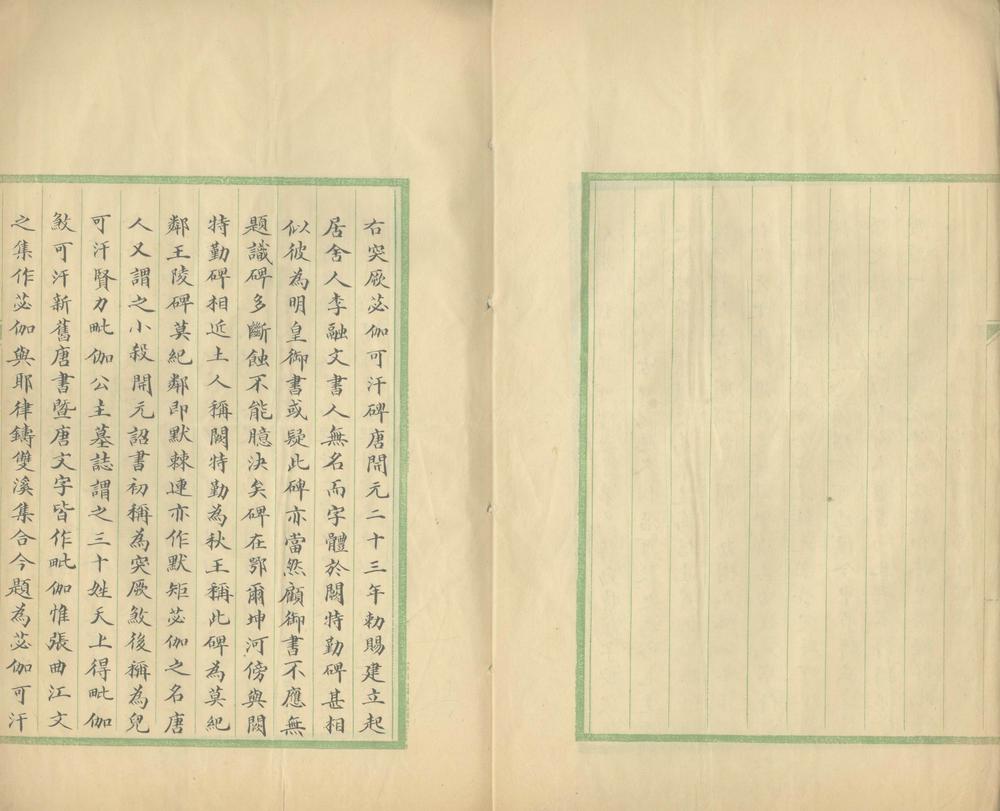 右突厥苾伽可汗碑唐開元二十三年勅賜建立起
居舍人李融文書人無名而字體於闕特勤碑甚相
似彼為明皇御書或疑此碑亦當然顧御書不應無
題識碑多斷蝕不能臆決矣碑在鄂爾坤河傍與闕
特勤碑相近土人稱闕特勤為秋王稱此碑為莫紀
鄰王陵碑莫紀鄰即默棘連亦作默矩苾伽之名唐
人又謂之小殺開元詔書初稱為突厥敘後稱為兒
可汗賢力毗伽公主墓誌謂之三十姓天上得毗伽
敘可汗新舊唐書暨唐文字皆作毗伽惟張曲江文
之集作苾伽與耶律鑄雙溪集合今題為苾伽可汗